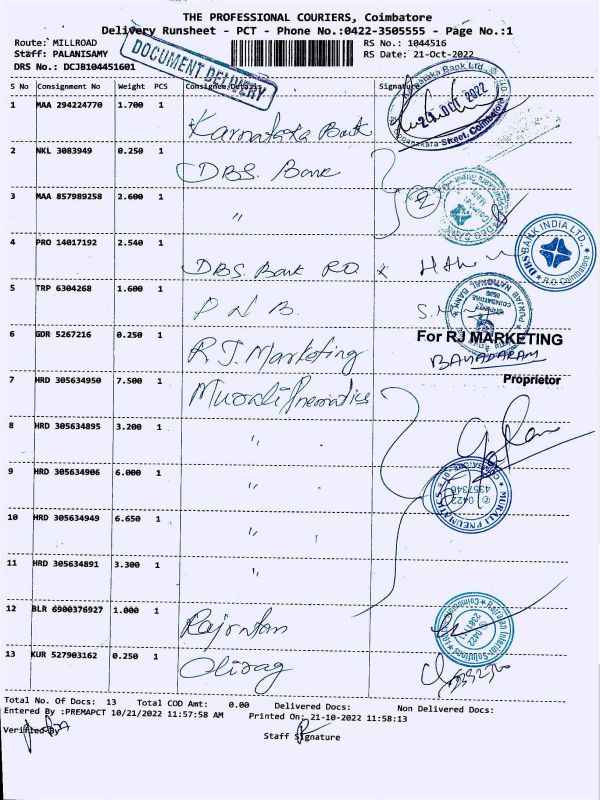 THE PROFESSIONAL COURIERS, Coimbatore
Delivery Runsheet - PCT - Phone No.:0422-3505555 - Page No.:1
Route: MILLROAD
RS No.: 1044516
Staff: PALANISAMY
RS Date: 21-Oct-2022
DRS No.: DCJB104451601
DOCUMENT DELIVERY
S No Consignment No Weight PCS Consignee Details Signature
1 MAA 294224770 1.700 1 Karnataka Bank
Karnataka Bank Ltd.,
21 OCT 2022
Street, Coimbatore
2 NKL 3083949 0.250 1 DBS. Bank
3 MAA 857989258 2.600 1 "
2
4 PRO 14017192 2.540 1 DBS. Bank R.O.
DBS BANK INDIA LTD.,
R.O. Coimbatore
5 TRP 6304268 1.600 1 P N B.
PUNJAB NATIONAL BANK
COIMBATORE
6 GDR 5267216 0.250 1 R J. Marketing
For RJ MARKETING
Proprietor
7 HRD 305634950 7.500 1 Murali Pnematics
8 HRD 305634895 3.200 1 "
9 HRD 305634906 6.000 1 "
MURALI PNEUMATICS
0422
4357346
10 HRD 305634949 6.650 1 "
11 HRD 305634891 3.300 1 "
12 BLR 6900376927 1.000 1
0422
13 KUR 527903162 0.250 1
Total No. Of Docs: 13 Total COD Amt: 0.00 Delivered Docs: Non Delivered Docs:
Entered By :PREMAPCT 10/21/2022 11:57:58 AM Printed On: 21-10-2022 11:58:13
Verified By
Staff Signature